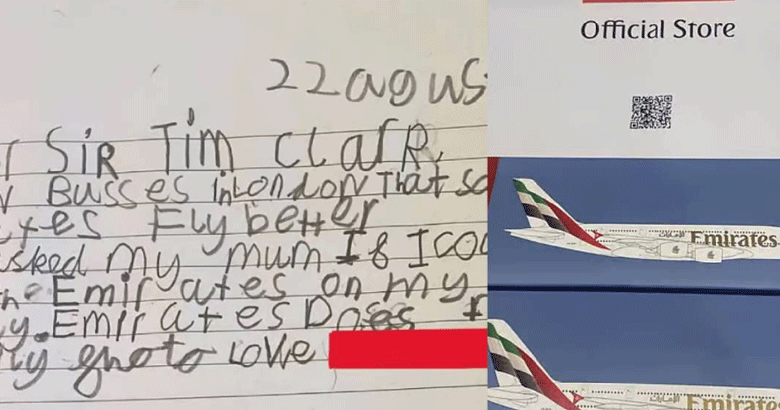 22 agous
SiR Tim ClarR,
Busses in London That
tes Fly better
sked My mum If I cou
Emirates on my
y. Emirates Does
ghoto Love
Official Store
الإمارات Emirates
الإمارات Emirates